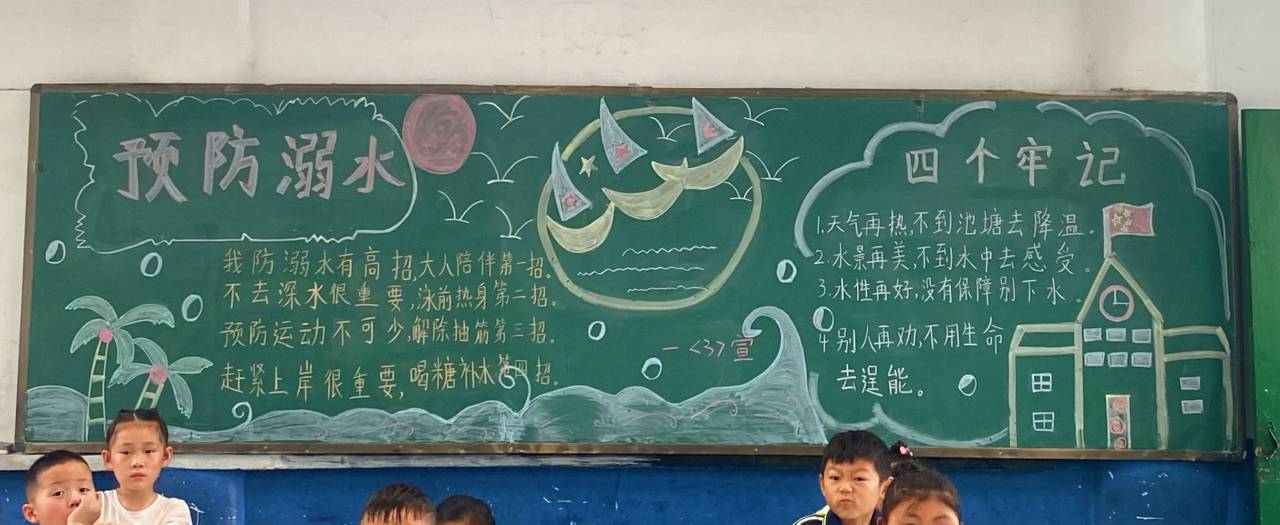 预防溺水
我防溺水有高招,大人陪伴第一招。
不去深水很重要,泳前热身第二招。
预防运动不可少,解除抽筋第三招。
赶紧上岸很重要,喝糖补水第四招。
一<3>宣
四个牢记
1.天气再热,不到池塘去降温。
2.水景再美,不到水中去感受。
3.水性再好,没有保障别下水。
4别人再劝,不用生命
去逞能。